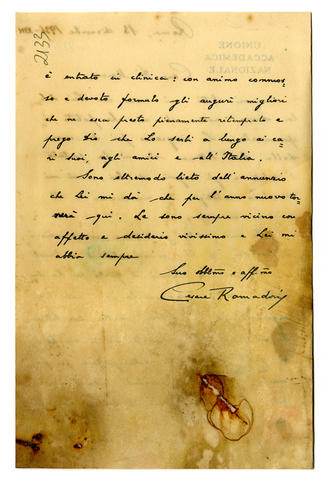 2133
UNIONE
ACCADEMICA
NAZIONALE
è entrato in clinica: con animo commos-
so e devoto formulo gli auguri migliori
che ne esca presto pienamente ritemprato e
prego Dio che Lo serbi a lungo ai ca-
ri suoi, agli amici e all'Italia.
Sono oltremodo lieto dell'annunzio
che Lei mi dà che per l'anno nuovo tor-
nerà qui. Le sono sempre vicino con
affetto e desiderio vivissimo e Lei mi
abbia sempre
Suo